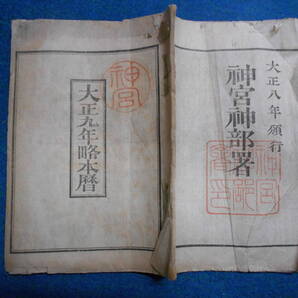 大正八年頒行
神宮神部署
神宮
大正九年略本暦